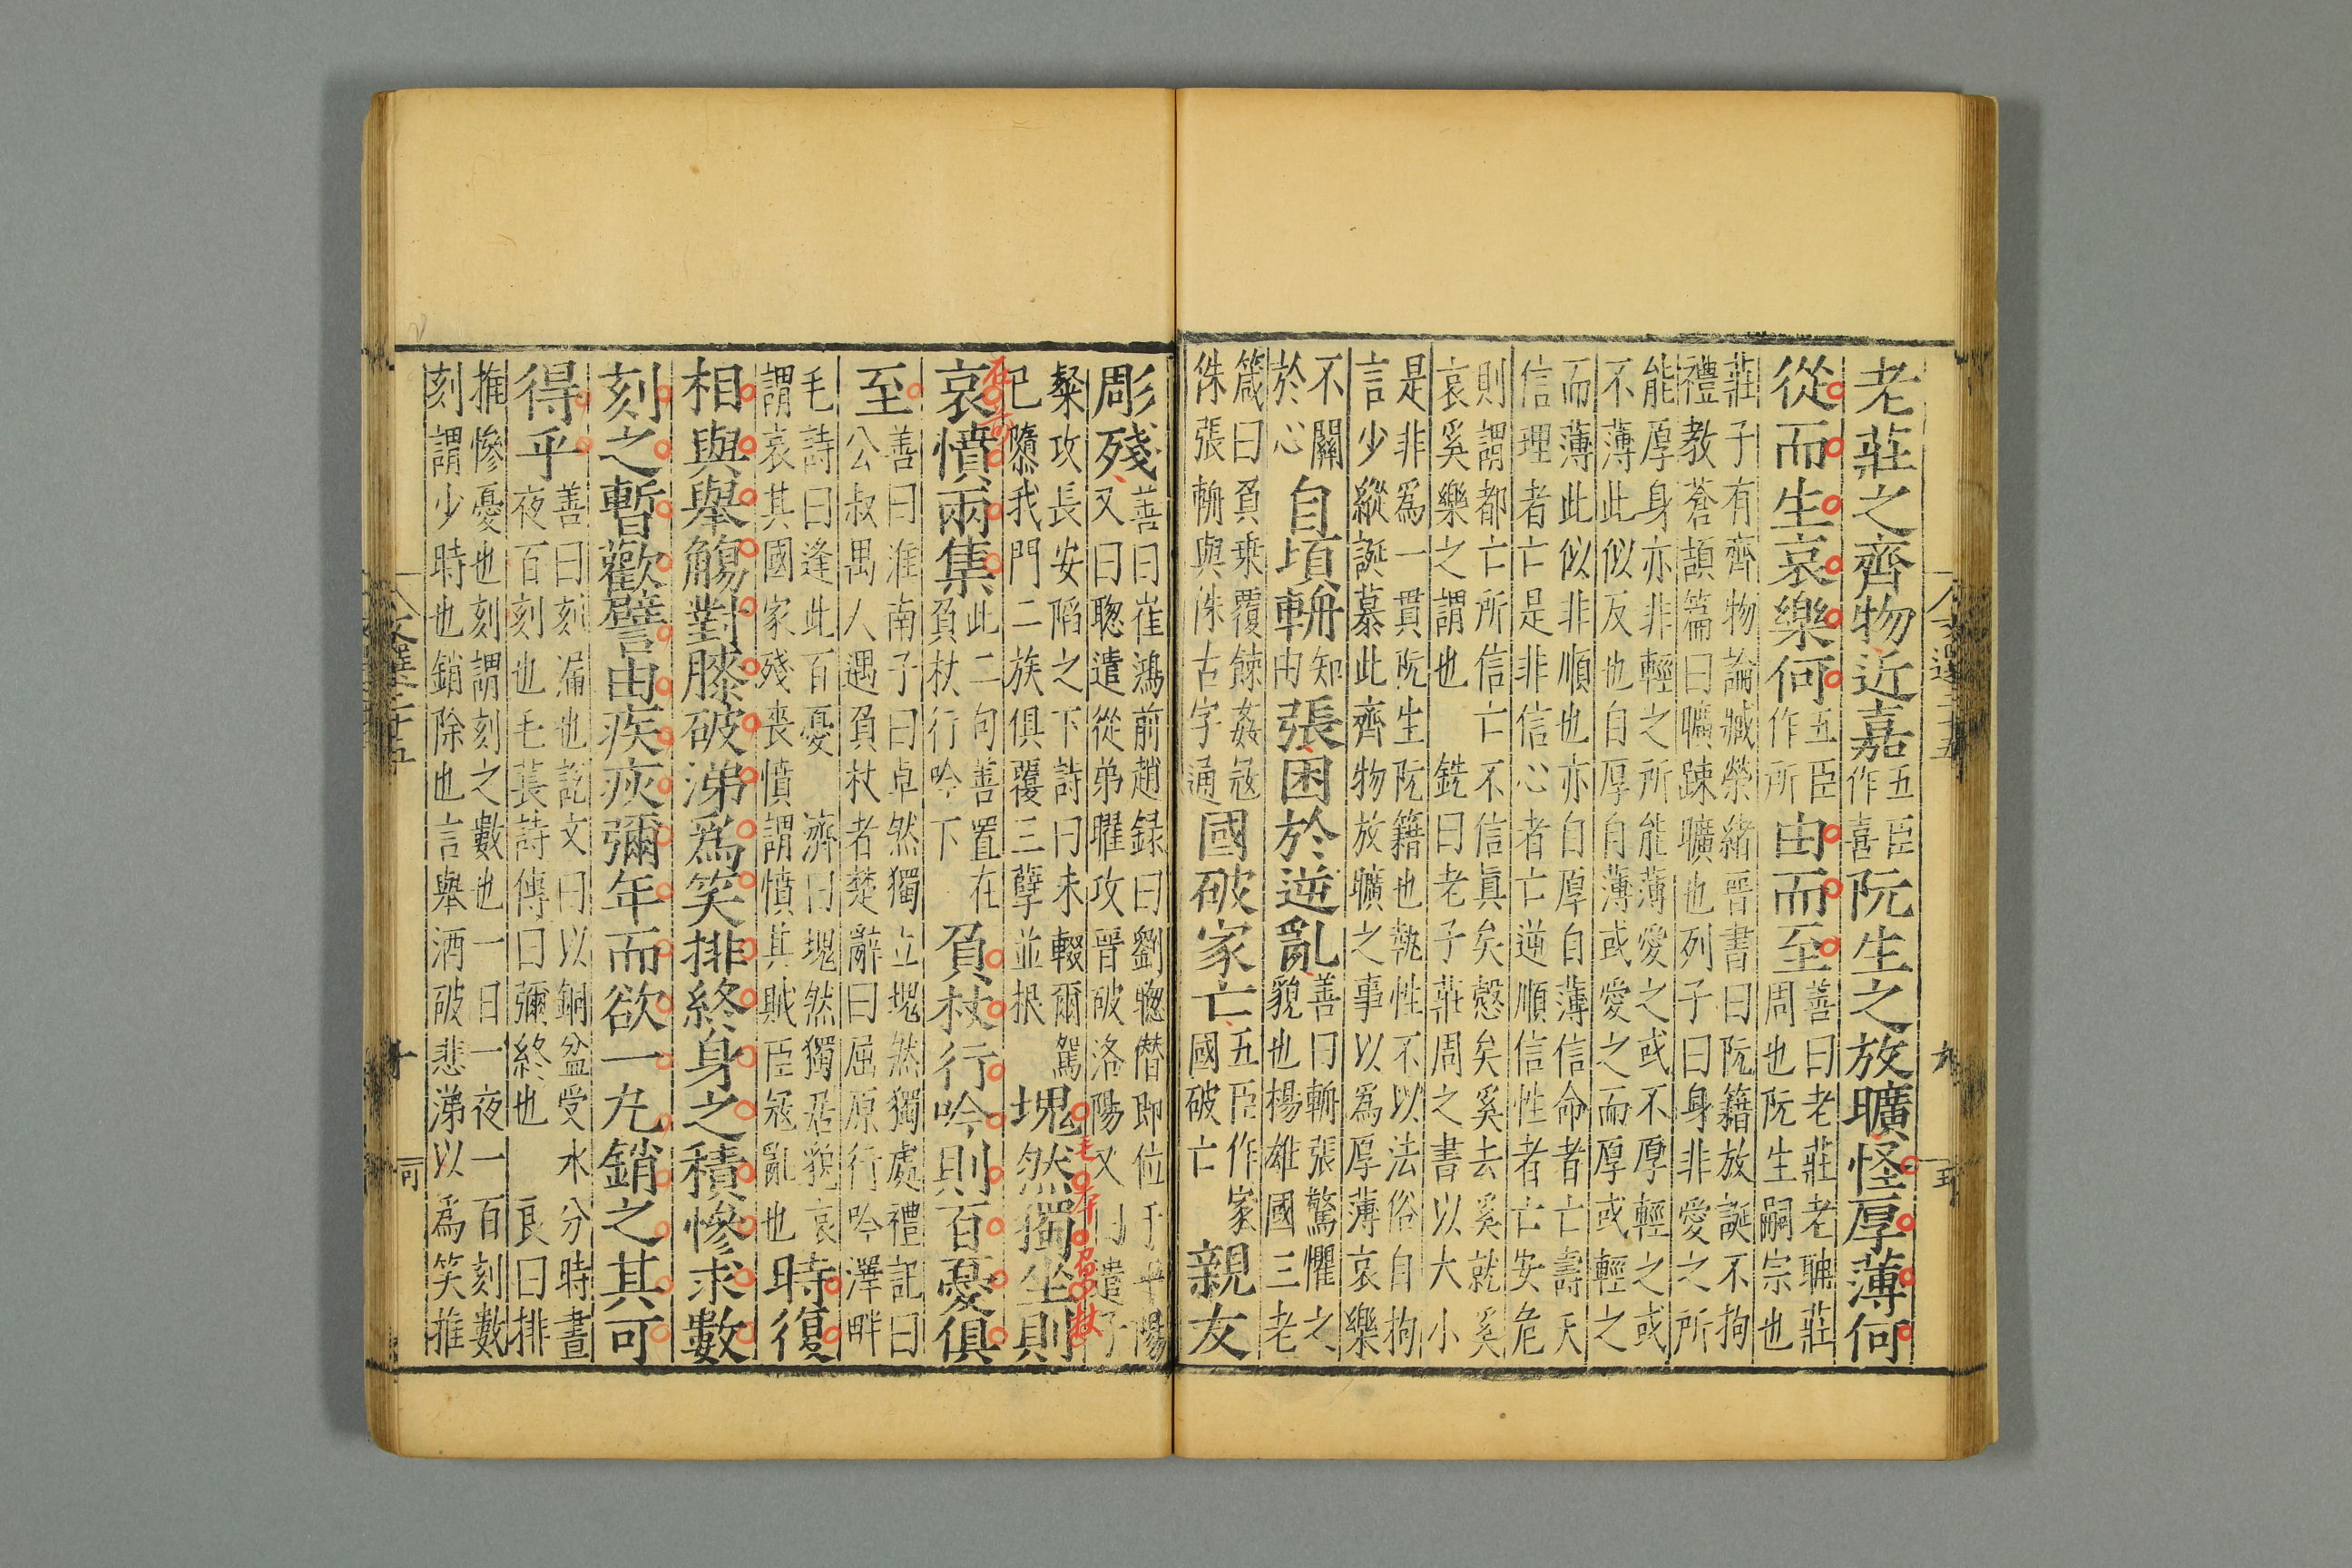 老莊之齊物近嘉五臣作喜阮生之放曠怪厚薄何
從而生哀樂何五臣作所由而至善曰老莊老聃莊周也阮生嗣宗也
莊子有齊物論臧榮緒晉書曰阮籍放誕不拘
禮教蒼頡篇曰曠踈曠也列子曰身非愛之所
能厚身亦非輕之所能薄愛之或不厚輕之或
不薄此似反也自厚自薄或愛之而厚或輕之
而薄此似非順也亦自厚自薄信命者亡壽夭
信理者亡是非信心者亡逆順信性者亡安危
則謂都亡所信亡不信眞矣慤矣奚去奚就奚
哀奚樂之謂也 銑曰老子莊周之書以大小
是非爲一貫阮生阮籍也執性不以法俗自拘
言少縱誕慕此齊物放曠之事以爲厚薄哀樂
不關於心自頃輈知由張困於逆亂善曰輈張驚懼之貌也楊雄國三老
箴曰負乗覆餗姦冦侏張輈與侏古字通國破家亡五臣作家國破亡親友
彫殘善曰崔鴻前趙録曰劉聦僭即位于平陽又曰聦遣從弟曜攻晉破洛陽又曰遣子
粲攻長安陷之下詩曰未輟爾駕已隳我門二族俱覆三孽並根塊然獨坐則
哀憤兩集此二句善置在負杖行吟下負杖行吟則百憂俱
至善曰淮南子曰卓然獨立塊然獨處禮記曰公叔禺人遇負杖者楚辭曰屈原行吟澤畔
毛詩曰逢此百憂 濟曰塊然獨居貌哀謂哀其國家殘喪憤謂憤其賊臣冦亂也時復
相與舉觴對膝破涕爲笑排終身之積慘求數
刻之暫歡譬由疾疢彌年而欲一丸銷之其可
得乎善曰刻漏也説文曰以銅盆受水分時晝夜百刻也毛萇詩傳曰彌終也 良曰排
推慘憂也刻謂刻之數也一日一夜一百刻數
刻謂少時也銷除也言舉酒破悲涕以爲笑推